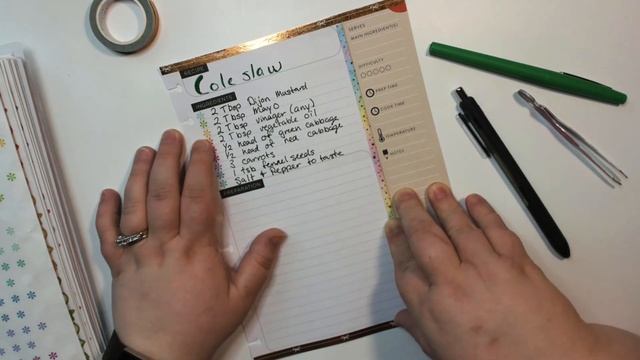 RECIPE
Cole slaw
INGREDIENTS
2 Tbsp Dijon Mustard
2 Tbsp Mayo
2 Tbsp vinager (any)
2 Tbsp vegetable oil
1/2 head of green cabbage
1/2 head of red cabbage
3 carrots
1 tsb fennel seeds
Salt & Pepper to taste
PREPARATION
SERVES
MAIN INGREDIENT(S)
DIFFICULTY
PREP TIME
COOK TIME
TEMPERATURE
NOTES